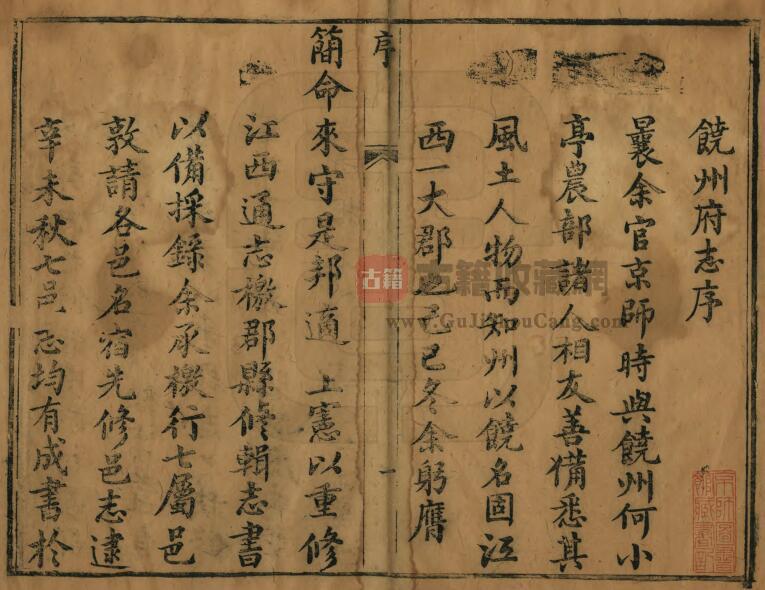 饒州府志序
曩余官京師時與饒州何小
亭農部諸人相友善備悉其
風土人物而知州以饒名固江
西一大郡也己巳冬余躬膺
序
一
簡命來守是邦適 上憲以重修
江西通志檄郡縣修輯志書
以備採錄余承檄行七屬邑
敦請各邑名宿先修邑志逮
辛未秋七邑志均有成書於
古籍
古籍收藏網
www.GuJiShouCang.com